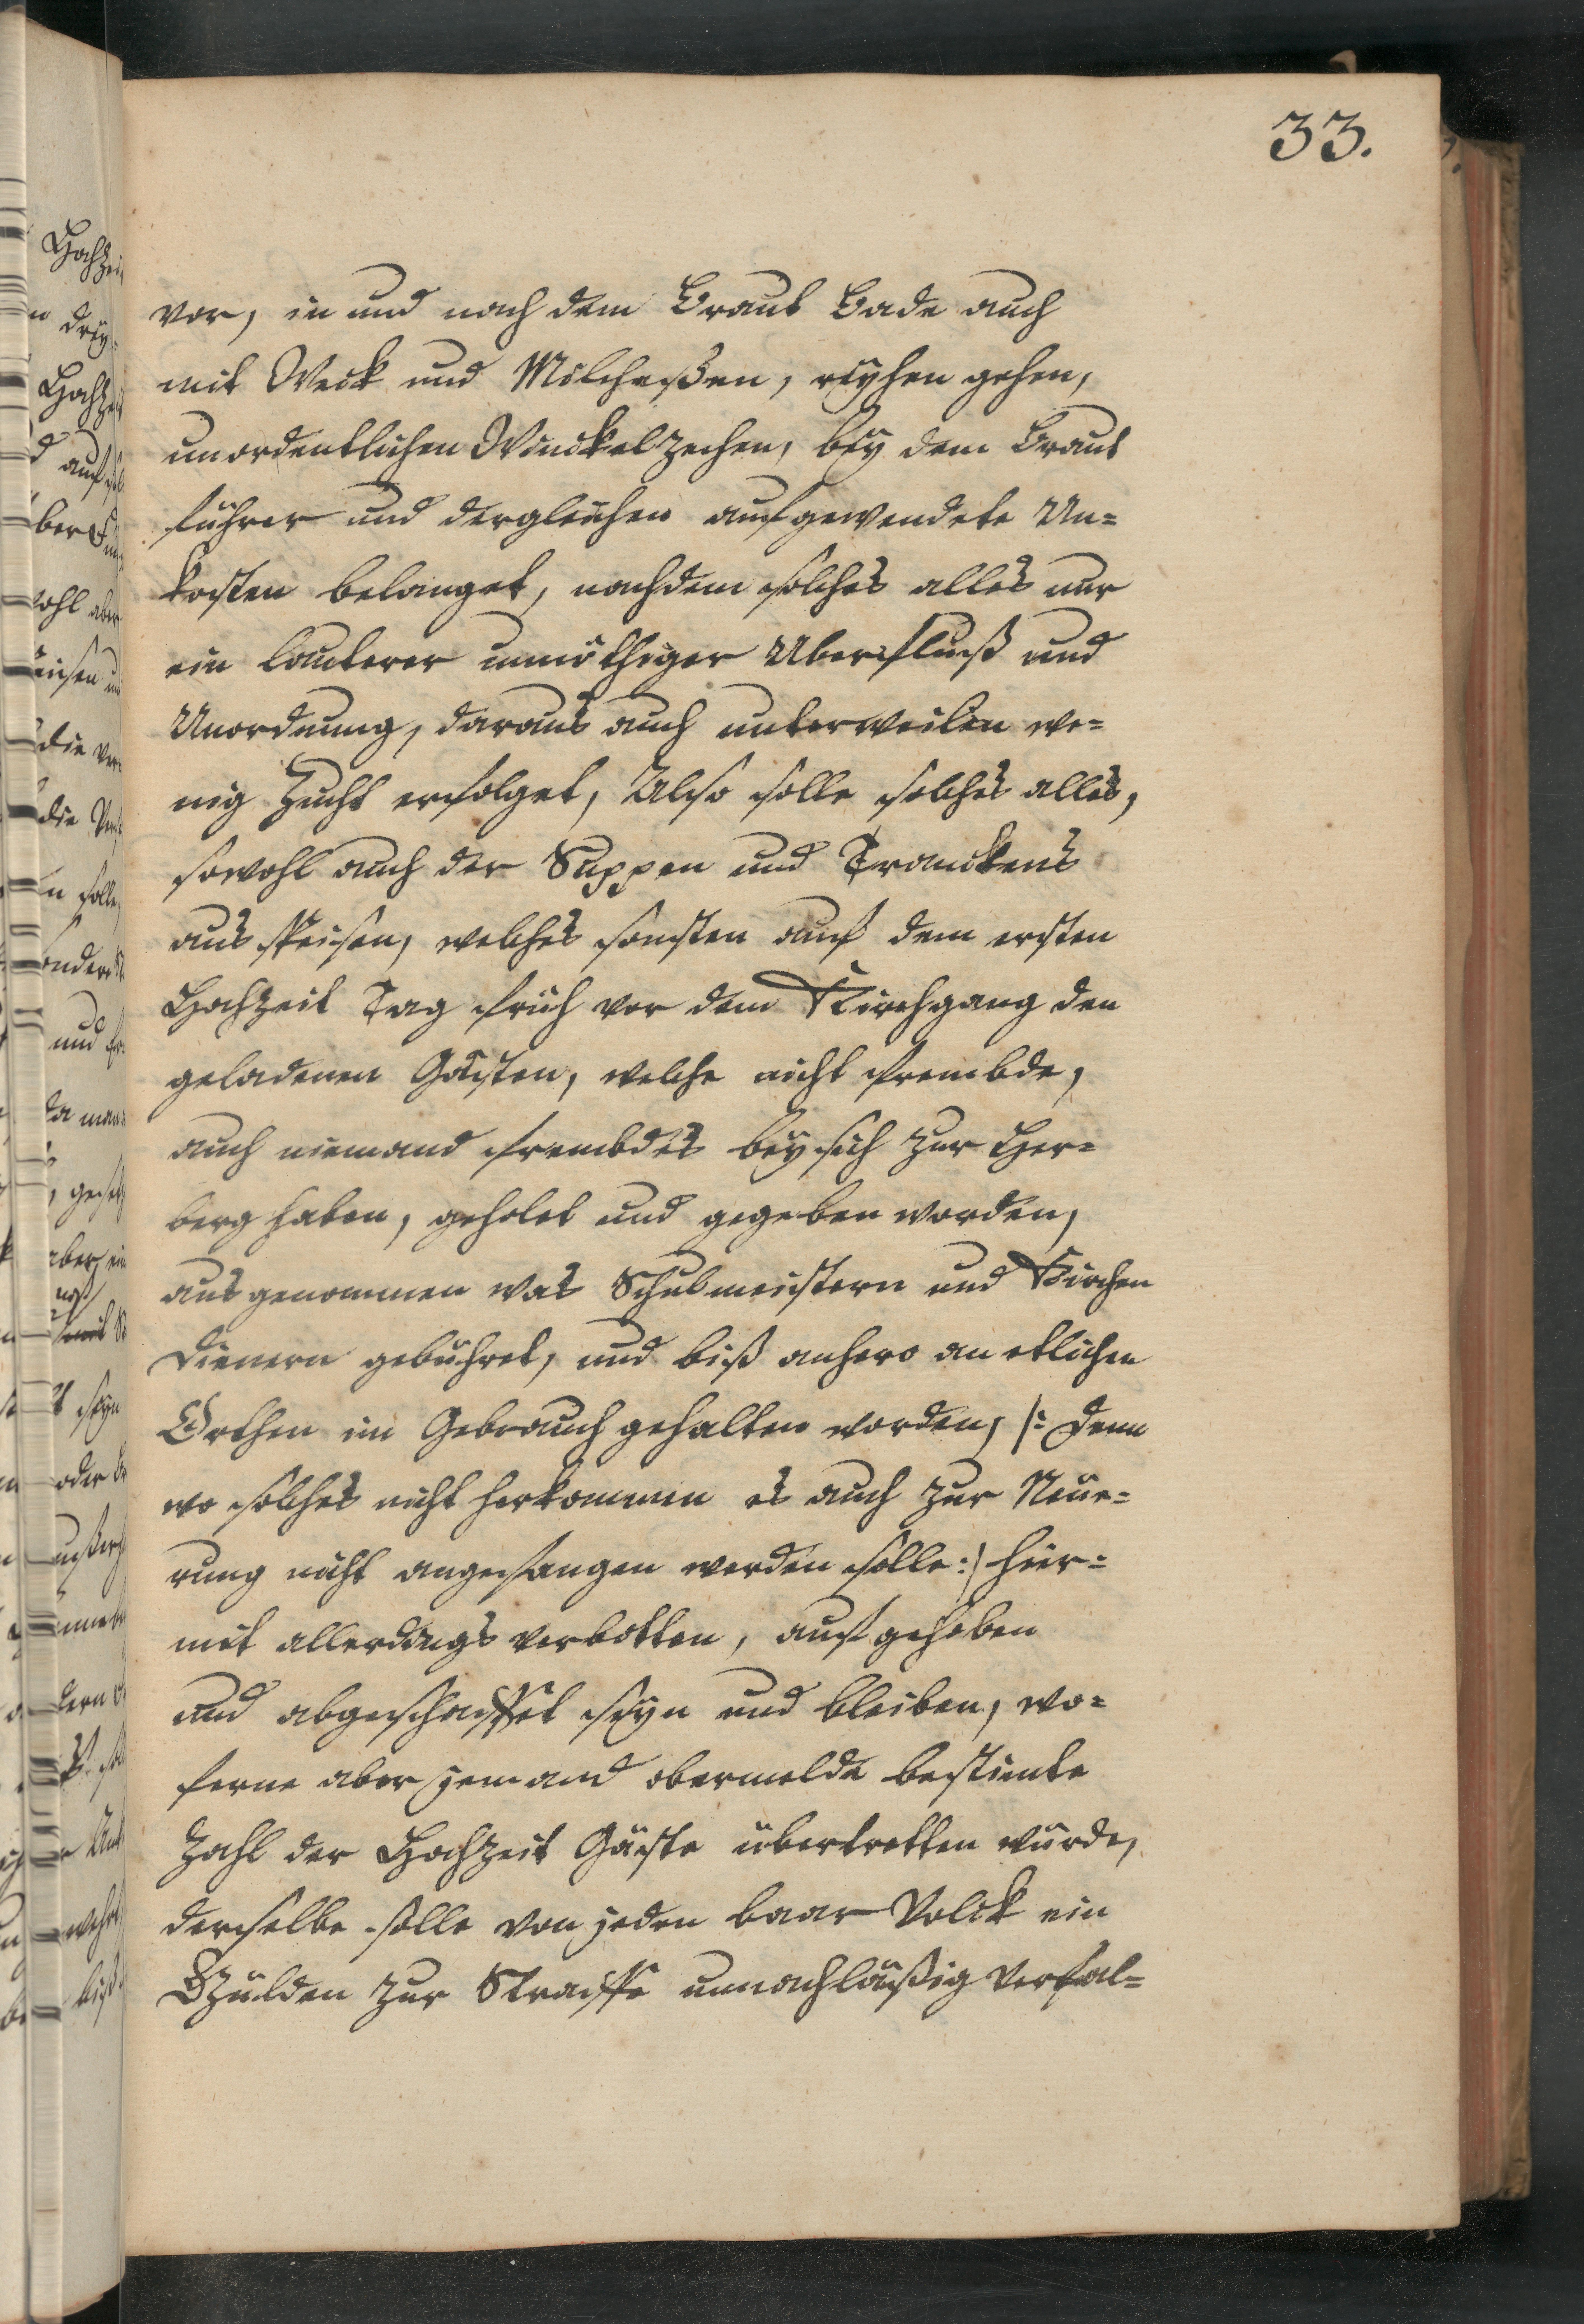 33.
vor, in und nach dem Braut Bade auch
mit Weck und Milcheßen, reyhen gehen,
unordentlichen Winckelzechen, bey dem Braut
führer und dergleichen aufgewendete Un=
kosten belanget, nachdem solches alles nur
ein lauterer unnöthiger Uberfluß und
Unordnung, daraus auch unterweilen we=
nig Zucht erfolget, Also solle solches alles,
sowohl auch der Suppen und Tranckens
aus speisen, welches sonsten auf dem ersten
Hochzeit Tag früh vor dem Kirchgang den
geladenen Gästen, welche nicht frembde,
auch niemand frembdes bey sich zur Her=
berg haben, geholet und gegeben worden,
ausgenommen was Schulmeistern und Kirchen
Dienern gebühret, und biß anhero an etlichen
Orthen im Gebrauch gehalten worden, /: denn
wo solches nicht herkommen es auch zur Neue=
rung nicht angefangen werden solle :/ hier=
mit allerdings verbotten, aufgehoben
und abgeschaffet seyn und bleiben, wo=
ferne aber jemand obermelde bestimte
Zahl der Hochzeit Gäste übertretten würde,
derselbe solle von jeden baar Volck ein
Gülden zur Straffe unnachläßig verfal=